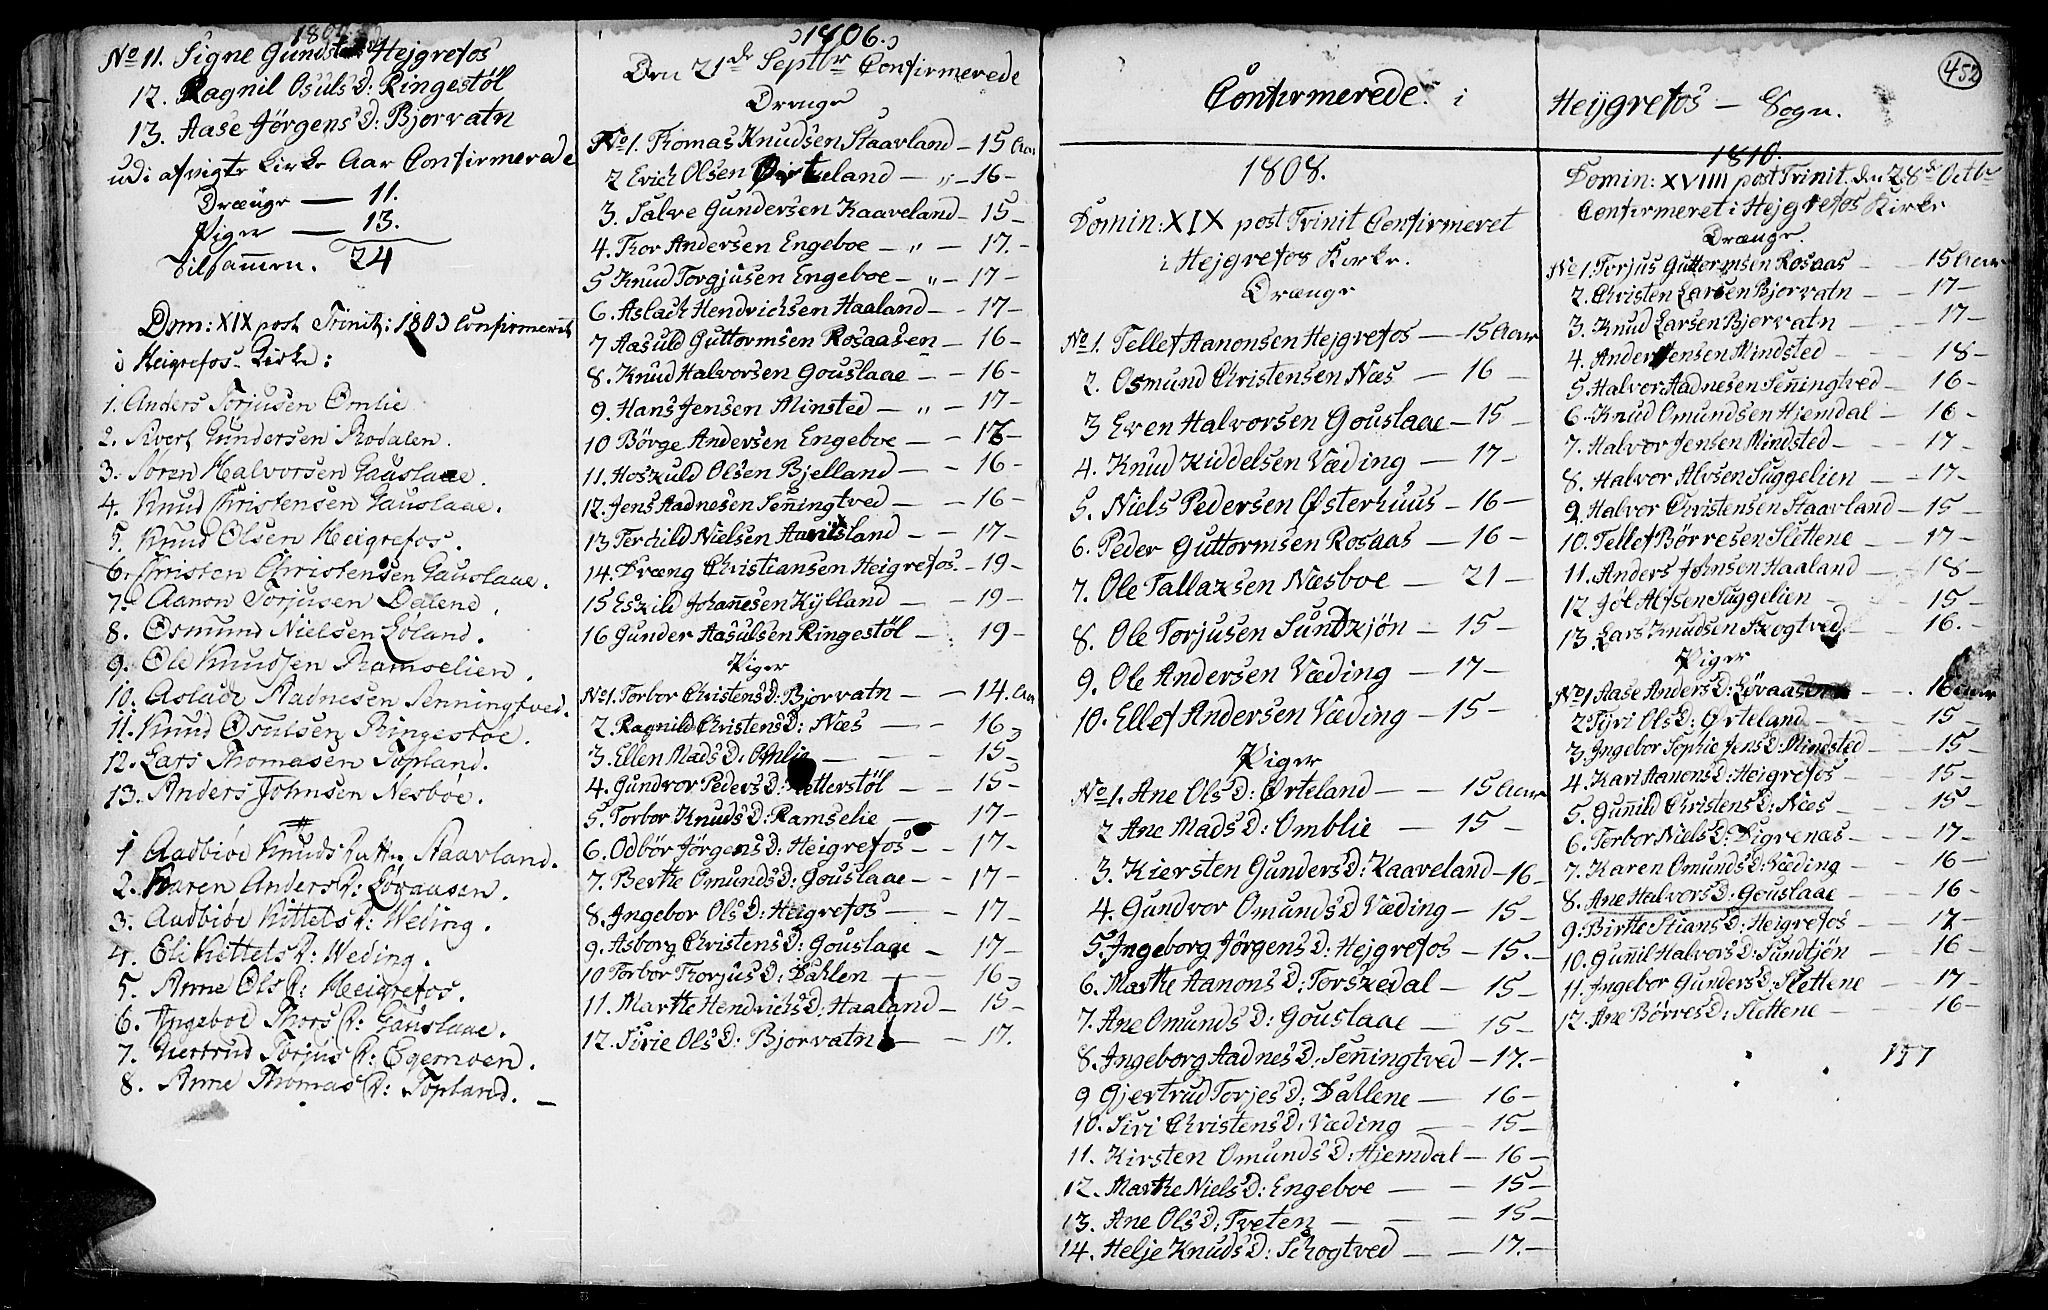 No 11. Signe Gundsteens D Hejgrefos
12. Ragnil Osuls D: Ringestöl
13. Aase Jörgens D: Bjorvatn
udi afvigte Kirke Aar Confirmerede
Drænge — 11.
Piger — 13.
Tilsam̄en. 24
Dom: XIX post Trinit: 1803 Confirmeret
i Heigrefos Kirke:
1. Anders Torjusen Omlie
2. Sivert Gundersen Rodalen.
3. Søren Halvorsen Gauslaae.
4. Knud Christensen Gauslaae.
5. Knud Olsen Heigrefos.
6. Christen Christensen Gauslaae.
7. Aanon Torjusen Dellene.
8. Osmund Nielsen Løland.
9. Ole Knudsen Ramselien.
10. Aslack Aadnesen Senningtved.
11. Knud Osulsen Ringestøe.
12. Lars Thomasen Topland.
13. Anders Johnsen Nesbøe.
1 Aadbiør Knuds Datter Staavland.
2. Karen Anders D: Løvaasen.
3. Aadbiør Kittels D: Weding.
4. Eli Kittels D: Weding.
5. Anne Ols D: Heigrefos.
6. Ingeboe Thors D: Gauslaae.
7. Giertrud Torjus D: Egemoen.
8. Anne Thomas D: Topland. —
1806.
Den 21de Septbr Confirmerede
Drænge
No 1. Thomas Knudsen Staavland — 15 Aar
2 Erich Olsen Ørteland — „ — 16 —
3. Salve Gundersen Kaaveland — 15 —
4. Thor Andersen Engeboe — „ — 17. —
5 Knud Torgjusen Engeboe — „ — 17 —
6. Aslach Hendrichsen Haaland — 17 —
7 Aasuld Guttormsen Rosaasen — 16 —
8. Knud Halvorsen Gouslaae — 16 —
9. Hans Jensen Minsted — „ — 17 —
10 Börge Andersen Engeboe — 16 —
11. Hoskuld Olsen Bjelland — 16 —
12. Jens Aadnesen Sen̄ingtved — 16 —
13 Terchild Nielsen Haavisland — 17 —
14. Dræng Christiansen Heigrefos — 19 —
15 Eskild Johan̄esen Kylland — 19 —
16 Gunder Aasulsen Ringestöl — 19 —
Piger
No 1. Torbor Christens D: Bjorvatn — 14. Aar
2. Ragnild Christens D: Næs — 16
3. Ellen Mads D: Omlie — 15 —
4. Gundvor Peders D: Retterstöl — 15 —
5. Torbor Knuds D: Ramselie — 17 —
6. Odbör Jörgens D: Heigrefos — 17 —
7. Berthe Omunds D: Gouslaae — 17 —
8. Ingebor Ols D: Heigrefos — 17 —
9. Asborg Christens D: Gouslaae — 17 —
10 Torbor Thorjus D: Dahlen — 16
11. Marthe Hendrichs D: Haaland — 15 —
12. Sirie Ols D: Bjorvatn — 17.
Confirmerede i
1808.
Domin: XIX post Trinit Confirmeret
i Hejgrefos Kirke.
Drænge
No 1. Tellef Aanonsen Hejgrefos — 15 Aar
2. Osmund Christensen Næs — 16 —
3 Even Halvorsen Gouslaae — 15 —
4. Knud Kiddelsen Væding — 17 —
5. Niels Pedersen Østerhuus — 16 —
6. Peder Guttormsen Rosaas — 16 —
7. Ole Tallaksen Næsboe — 21 —
8. Ole Torjusen Sundkjön — 15 —
9. Ole Andersen Væding — 17 —
10. Ellef Andersen Væding — 15 —
Piger
No 1. Ane Ols D: Ørteland — 15 Aar
2 Ane Mads D: Omblie — 15 —
3. Kiersten Gunders D: Kaaveland — 16 —
4. Gundvor Omunds D Væding — 15 —
5. Ingeborg Jörgens D: Hejgrefos — 15. —
6. Marthe Aanons D: Torskedal — 15 —
7. Ane Omunds D: Gouslaae — 15 —
8. Ingeborg Aadnes D: Sen̄ingtved — 17. —
9 Gjertrud Torjes D: Dahlene — 16 —
10. Siri Christens D: Væding — 15 —
11. Kirsten Omunds D: Hjemdal — 16 —
12. Marthe Niels D: Engeboe — 15 —
13. Ane Ols D: Tveten — 15 —
14. Helje Knuds D: Schogtved — 17. —
452
Heijgrefos — Sogn.
1810.
Domin: XVIIII post Trinit. den 28de Octbr
Confirmeret i Hejgrefos Kirke
Drænge.
No 1. Torjus Guttormsen Rosaas — 15 Aar
2. Christen Larsen Bjorvatn — 17 —
3. Knud Larsen Bjorvatn — 17 —
4. Anders Jensen Mindsted — 18 —
5. Halvor Aadnesen Sen̄ingtved — 16 —
6. Knud Omundsen Hiemdal — 16 —
7. Halvor Jensen Mindsted — 17 —
8. Halvor Alvsen Suggelien — 17 —
9 Halvor Christensen Staavland — 15 —
10. Tellef Börresen Slettene — 17 —
11. Anders Johnsen Haaland — 18 —
12 Jöl Alfsen Suggelien — 15 —
13. Lars Knudsen Skogtved — 16. —
Piger
No 1 Aase Anders D: Løvaasen — 16 Aar
2 Tyri Ols D: Ørteland — 15 —
3. Ingebor Sophie Jens D: Mindsted — 15 —
4. Kari Aanons D: Heigrefos — 15 —
5. Gun̄ild Christens D: Næs — 15 —
6. Torbor Niels D: Digrenæs — 17 —
7. Karen Omunds D: Væding — 16 —
8. Ane Halvors D: Gouslaae — 16 —
9. Birthe Stians D: Heigrefos — 17 —
10. Gun̄il Halvors D: Sundtjön — 16 —
11. Ingebor Gunders D: Slettene — 17 —
12. Ane Börres D: Slettene — 16 —